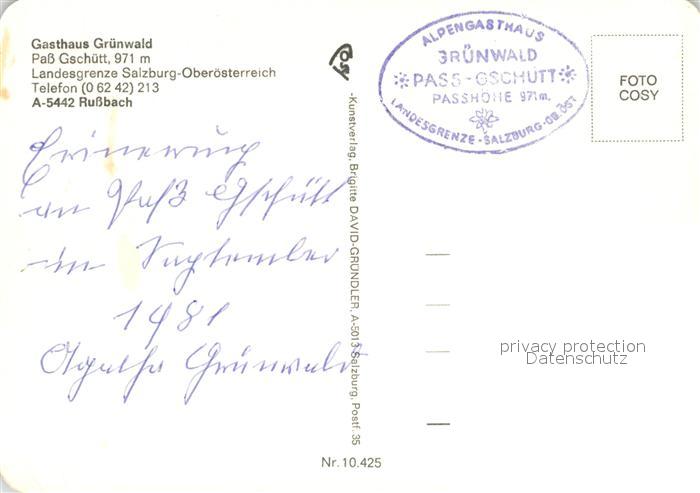 Gasthaus Grünwald
Paß Gschütt, 971 m
Landesgrenze Salzburg-Oberösterreich
Telefon (0 62 42) 213
A-5442 Rußbach
Erinerung
an Paß Gschütt
im September
1981
Agatha Grünwald
-Kunstverlag, Brigitte DAVID-GRÜNDLER, A-5013 Salzburg, Postf. 35
Nr. 10.425
ALPENGASTHAUS
GRÜNWALD
PASS-GSCHÜTT
PASSHÖHE 971m.
LANDESGRENZE-SALZBURG-OB.ÖST
FOTO
COSY
privacy protection
Datenschutz